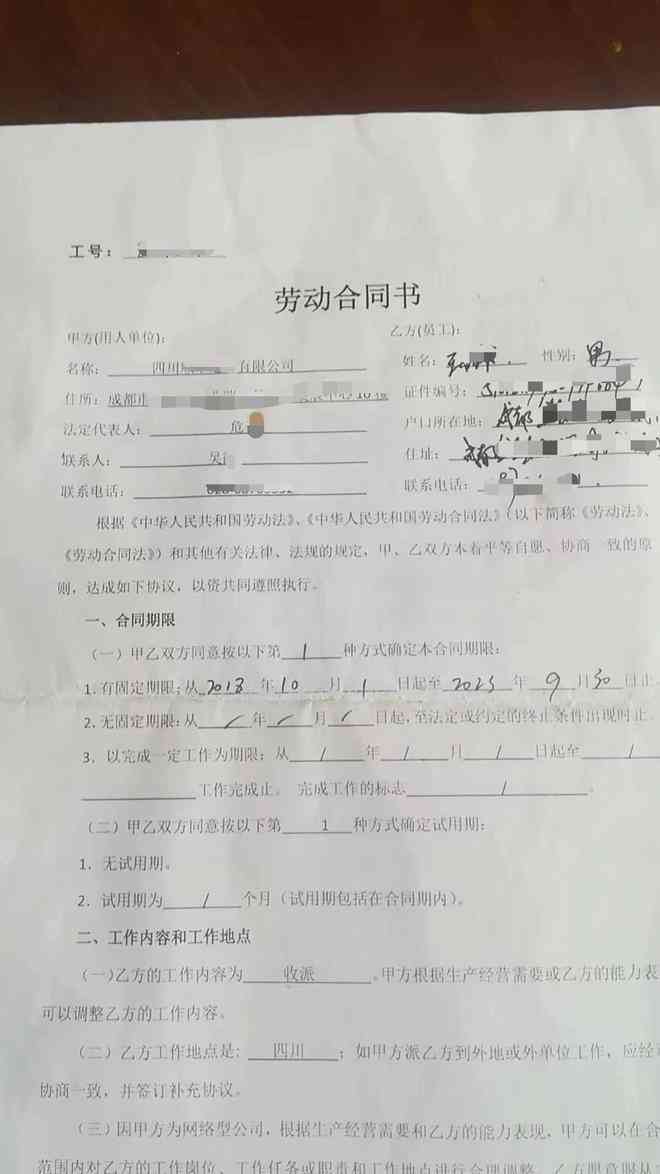 工号：
劳动合同书
甲方(用人单位):
乙方(员工):
名称： 四川 有限公司
姓名： 性别：男
住所：成都市
证件编号：
法定代表人： 危
户口所在地：成都
联系人： 吴
住址：成都
联系电话：
联系电话：
根据《中华人民共和国劳动法》、《中华人民共和国劳动合同法》（以下简称《劳动法》、
《劳动合同法》）和其他有关法律、法规的规定，甲、乙双方本着平等自愿、协商一致的原
则，达成如下协议，以资共同遵照执行。
一、合同期限
（一）甲乙双方同意按以下第 1 种方式确定本合同期限：
1.有固定期限：从 2018 年 10 月 1 日起至 2023 年 9 月 30 日止
2.无固定期限：从 / 年 / 月 / 日起，至法定或约定的终止条件出现时止。
3．以完成一定工作为期限：从 / 年 / 月 / 日起至 /
工作完成止。 完成工作的标志 / 。
（二）甲乙双方同意按以下第 1 种方式确定试用期：
1．无试用期。
2．试用期为 / 个月（试用期包括在合同期内）。
二、工作内容和工作地点
（一)乙方的工作内容为 收派 。甲方根据生产经营需要或乙方的能力表
可以调整乙方的工作内容。
（二）乙方工作地点是： 四川 ；如甲方派乙方到外地或外单位工作，应经
协商一致，并签订补充协议。
（三）因甲方为网络型公司，根据生产经营需要和乙方的能力表现，甲方可以在合
范围内对乙方的工作岗位、工作任务或职责和工作地点进行合理调整，乙方愿意服从